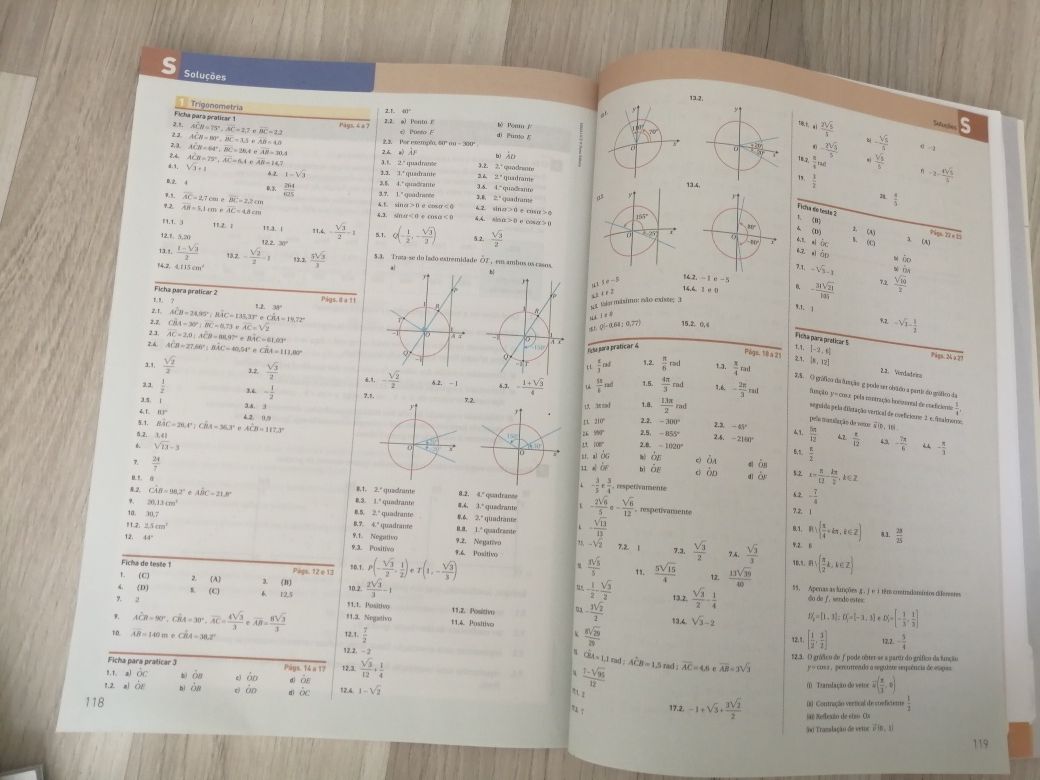 S Soluções
1 Trigonometria
Ficha para praticar 1 Págs. 4 a 7
2.1. AĈB = 75°, AC = 2,7 e BC = 2,2
2.2. AĈB = 80°, BC = 3,5 e AB = 4,0
2.3. AĈB = 64°, BC = 28,4 e AB = 30,4
2.4. AĈB = 75°, AC = 6,4 e AB = 14,7
6.1. √3 + 1 6.2. 1 − √3
8.2. 4 8.3. 264/625
9.1. AC = 2,7 cm e BC = 2,2 cm
9.2. AB = 5,1 cm e AC = 4,8 cm
11.1. 3 11.2. 1 11.3. 1 11.4. −√3/2 − 1
12.1. 5,20 12.2. 30°
13.1. (1 − √3)/2 13.2. −√2/2 − 1 13.3. 5√3/3
14.2. 4,115 cm²
Ficha para praticar 2 Págs. 8 a 11
1.1. 7 1.2. 38°
2.1. AĈB = 24,95°; BÂC = 135,33° e CB̂A = 19,72°
2.2. CB̂A = 30°; BC = 0,73 e AC = √2
2.3. AC = 2,0; AĈB = 88,97° e BÂC = 61,03°
2.4. AĈB = 27,66°; BÂC = 40,54° e CB̂A = 111,80°
3.1. √2/2 3.2. √3/2
3.3. 1/2 3.4. −1/2
3.5. 1 3.6. 3
4.1. 83° 4.2. 9,9
5.1. BÂC = 26,4°; CB̂A = 36,3° e AĈB = 117,3°
5.2. 3,41
6. √13 − 3
7. 24/7
8.1. 8
8.2. CÂB = 98,2° e AB̂C = 21,8°
9. 20,13 cm²
10. 30,7
11.2. 2,5 cm²
12. 44°
Ficha de teste 1 Págs. 12 e 13
1. (C) 2. (A) 3. (B)
4. (D) 5. (C) 6. 12,5
7. 2
9. AĈB = 90°, CB̂A = 30°, AC = 4√3/3 e AB = 8√3/3
10. AB = 140 m e CB̂A = 38,2°
Ficha para praticar 3 Págs. 14 a 17
1.1. a) ȮC b) ȮB c) ȮD d) ȮE
1.2. a) ȮE b) ȮB c) ȮD d) ȮC
118
2.1. 40°
2.2. a) Ponto E b) Ponto F
c) Ponto F d) Ponto E
2.3. Por exemplo, 60° ou −300°.
2.4. a) ȦF b) ȦD
3.1. 2.° quadrante 3.2. 2.° quadrante
3.3. 3.° quadrante 3.4. 2.° quadrante
3.5. 4.° quadrante 3.6. 4.° quadrante
3.7. 1.° quadrante 3.8. 2.° quadrante
4.1. sin α > 0 e cos α < 0 4.2. sin α > 0 e cos α > 0
4.3. sin α < 0 e cos α < 0 4.4. sin α > 0 e cos α > 0
5.1. Q(−1/2, −√3/2) 5.2. √3/2
5.3. Trata-se do lado extremidade ȮT, em ambos os casos.
a) b)
6.1. −√2/2 6.2. −1 6.3. −(1 + √3)/4
7.1. 7.2.
8.1. 2.° quadrante 8.2. 4.° quadrante
8.3. 1.° quadrante 8.4. 3.° quadrante
8.5. 2.° quadrante 8.6. 2.° quadrante
8.7. 4.° quadrante 8.8. 1.° quadrante
9.1. Negativo 9.2. Negativo
9.3. Positivo 9.4. Positivo
10.1. P(−√3/2, 1/2) e T(1, −√3/3)
10.2. 2√3/3 − 1
11.1. Positivo 11.2. Positivo
11.3. Negativo 11.4. Positivo
12.1. 7/2
12.2. −2
12.3. √3/12 + 1/4
12.4. 1 − √2
13.2.
13.4.
14.1. 1 e −5 14.2. −1 e −5
14.3. 4 e 2 14.4. 1 e 0
Valor máximo: não existe; 3
15.1. Q(−0,64; 0,77) 15.2. 0,4
Ficha para praticar 4 Págs. 18 a 21
1.1. π/3 rad 1.2. π/6 rad 1.3. π/4 rad
1.5. 4π/3 rad 1.6. −2π/3 rad
1.7. 3π rad 1.8. 13π/2 rad
2.1. 210° 2.2. −300° 2.3. −45°
2.4. 990° 2.5. −855° 2.6. −2160°
2.7. 108° 2.8. −1020°
3.1. a) ȮG b) ȮE c) ȮA d) ȮB
3.2. a) ȮF b) ȮE c) ȮD d) ȮF
−3/5 e 3/4, respetivamente
−2√6/5 e −√6/12, respetivamente
−√13/13
7.1. −√2 7.2. 1 7.3. √3/2 7.4. √3/3
3√5/5 11. 5√15/4 12. 13√39/40
13.1. −1/2 − √3/2 13.2. √3/2 − 1/4
13.3. −3√2/2 13.4. √3 − 2
8√29/29
CB̂A = 1,1 rad; AĈB = 1,5 rad; AC = 4,6 e AB = 3√3
(7 − √95)/12
17.1. 2 17.2. −1 + √3 + 3√2/2
Soluções S
18.1. a) 2√5/5 b) −√5/5 c) −2
d) −2√5/5 e) √5/5 f) −2 − 4√5/5
18.2. π/4 rad
19. 3/2 20. 4/5
Ficha de teste 2 Págs. 22 e 23
1. (B) 2. (A) 3. (A)
4. (D) 5. (C)
6.1. a) ȮC b) ȮD
6.2. a) ȮD b) ȮA
7.1. −√3 − 1 7.2. √10/2
8. −31√21/105
9.1. 1 9.2. −√3 − 1/2
Ficha para praticar 5 Págs. 24 a 27
1.1. [−2, 6]
2.1. [8, 12] 2.2. Verdadeira
2.5. O gráfico da função g pode ser obtido a partir do gráfico da
função y = cos x pela contração horizontal de coeficiente 1/4,
seguida pela dilatação vertical de coeficiente 2 e, finalmente,
pela translação de vetor u⃗(0, 10).
4.1. 5π/12 4.2. π/12 4.3. −7π/6 4.4. −π/3
5.1. π/2
5.2. x = π/12 + kπ/2, k ∈ Z
6.2. −7/4
7.2. 1
8.1. ℝ \ {π/4 + kπ, k ∈ Z} 8.3. 28/25
9.2. 6
10.1. ℝ \ {π/2 k, k ∈ Z}
11. Apenas as funções g, j e i têm contradomínios diferentes
do de f, sendo estes:
12.1. [1/2, 3/2] 12.2. −5/4
12.3. O gráfico de f pode obter-se a partir do gráfico da função
y = cos x, percorrendo a seguinte sequência de etapas:
(i) Translação de vetor u⃗(π/3, 0)
(ii) Contração vertical de coeficiente 1/2
(iii) Reflexão de eixo Ox
(iv) Translação de vetor v⃗(0, 1)
119